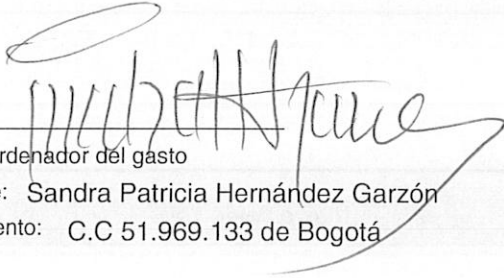 rdenador del gasto
: Sandra Patricia Hernández Garzón
ento: C.C 51.969.133 de Bogotá